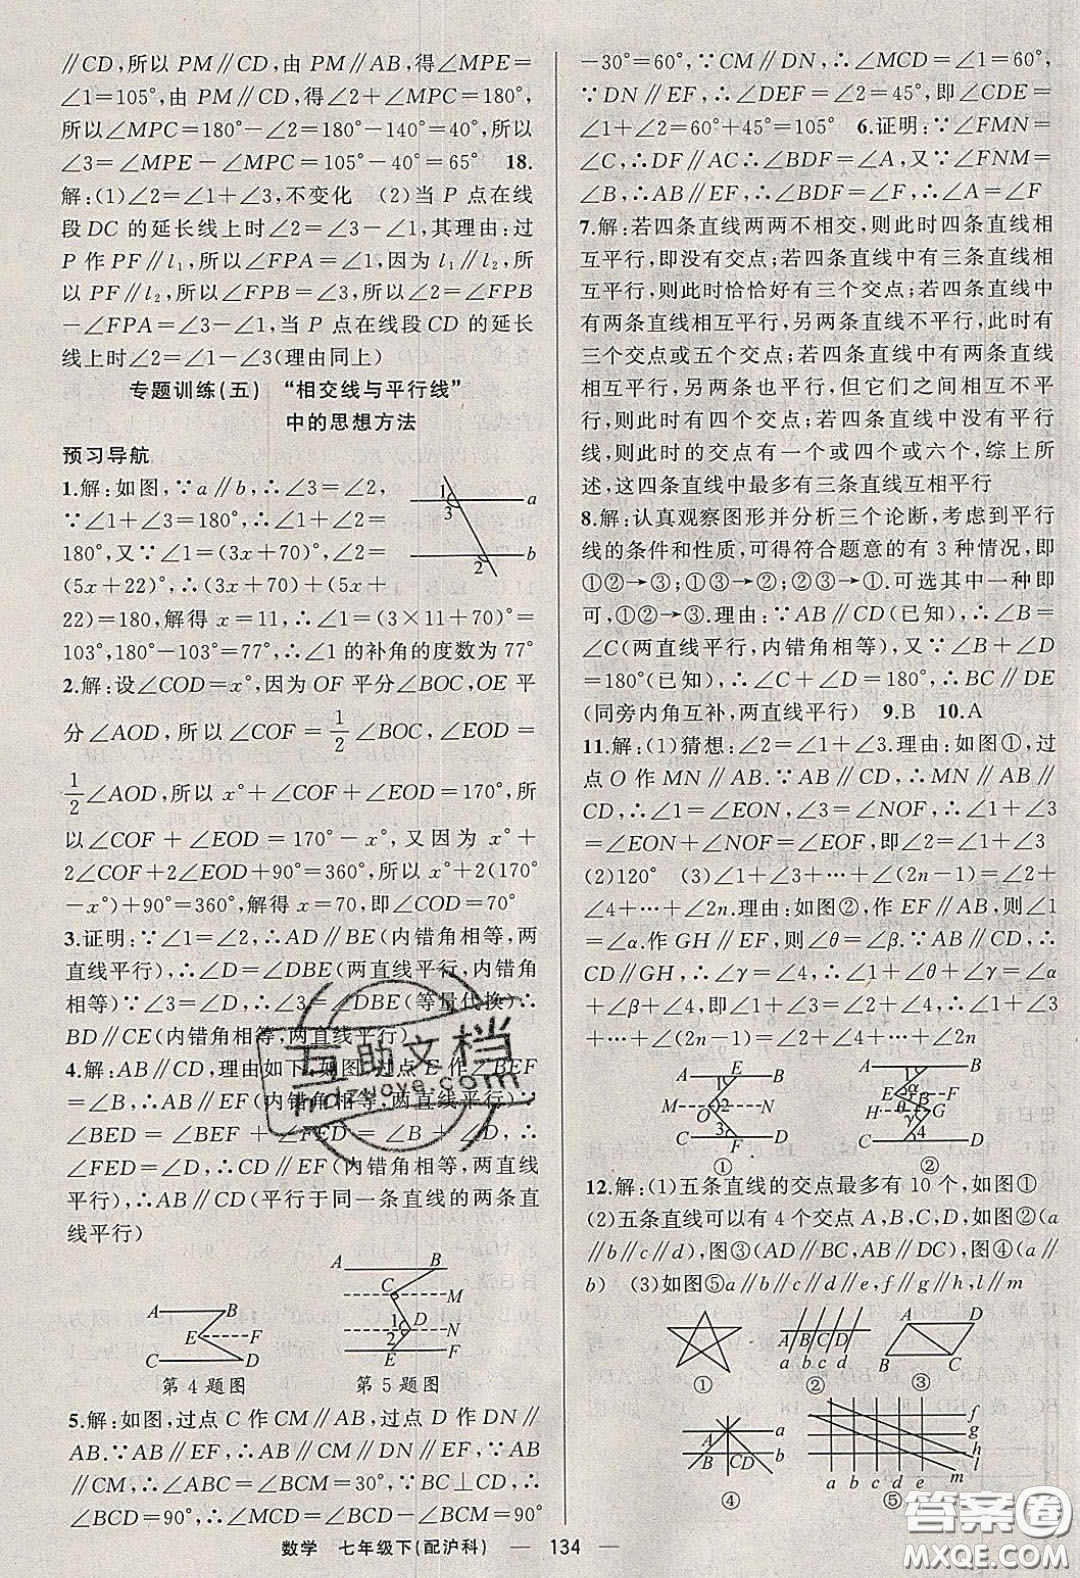 ∥CD,所以PM∥CD,由PM∥AB,得∠MPE=
∠1=105°,由PM∥CD,得∠2+∠MPC=180°,
所以∠MPC=180°-∠2=180°-140°=40°,所以
∠3=∠MPE-∠MPC=105°-40°=65° 18.
解:(1)∠2=∠1+∠3,不变化 (2)当P点在线
段DC的延长线上时∠2=∠3-∠1.理由:过
P作PF∥l₁,所以∠FPA=∠1,因为l₁∥l₂,所
以PF∥l₂,所以∠FPB=∠3,所以∠2=∠FPB
-∠FPA=∠3-∠1,当P点在线段CD的延长
线上时∠2=∠1-∠3(理由同上)
专题训练(五) “相交线与平行线”
中的思想方法
预习导航
1.解:如图,∵a∥b,∴∠3=∠2,
∵∠1+∠3=180°,∴∠1+∠2=
180°,又∵∠1=(3x+70)°,∠2=
(5x+22)°,∴(3x+70)+(5x+
22)=180,解得x=11,∴∠1=(3×11+70)°=
103°,180°-103°=77°,∴∠1的补角的度数为77°
1
3
2
a
b
2.解:设∠COD=x°,因为OF平分∠BOC,OE平
分∠AOD,所以∠COF=1/2∠BOC,∠EOD=
1/2∠AOD,所以x°+∠COF+∠EOD=170°,所
以∠COF+∠EOD=170°-x°,又因为x°+
2∠COF+2∠EOD+90°=360°,所以x°+2(170°
-x°)+90°=360°,解得x=70,即∠COD=70°
3.证明:∵∠1=∠2,∴AD∥BE(内错角相等,两
直线平行),∴∠D=∠DBE(两直线平行,内错角
相等)∵∠3=∠D,∴∠3=∠DBE(等量代换)∴
BD∥CE(内错角相等,两直线平行)
4.解:AB∥CD,理由如下:如图,过点E作∠BEF
=∠B,∴AB∥EF(内错角相等,两直线平行)∵
∠BED=∠BEF+∠FED=∠B+∠D,∴
∠FED=∠D,∴CD∥EF(内错角相等,两直线
平行),∴AB∥CD(平行于同一条直线的两条直
线平行)
A B
E F
C D
第4题图
A B
C M
1
2
D N
E F
第5题图
5.解:如图,过点C作CM∥AB,过点D作DN∥
AB.∵AB∥EF,∴AB∥CM∥DN∥EF,∵AB
∥CM,∴∠ABC=∠BCM=30°,∵BC⊥CD,∴
∠BCD=90°,∴∠MCD=∠BCD-∠BCM=90°
-30°=60°,∵CM∥DN,∴∠MCD=∠1=60°,
∵DN∥EF,∴∠DEF=∠2=45°,即∠CDE=
∠1+∠2=60°+45°=105° 6.证明:∵∠FMN=
∠C,∴DF∥AC,∴∠BDF=∠A,∵∠FNM=
∠B,∴AB∥EF,∴∠BDF=∠F,∴∠A=∠F
7.解:若四条直线两两不相交,则此时四条直线相
互平行,即没有交点;若四条直线中有三条直线相
互平行,则此时恰恰好有三个交点;若四条直线中
有两条直线相互平行,另两条直线不平行,此时有
三个交点或五个交点;若四条直线中有两条直线
相互平行,另两条也平行,但它们之间相互不平
行,则此时有四个交点;若四条直线中没有平行
线,则此时的交点有一个或四个或六个,综上所
述,这四条直线中最多有三条直线互相平行
8.解:认真观察图形并分析三个论断,考虑到平行
线的条件和性质,可得符合题意的有3种情况,即
①②→③;①③→②;②③→①.可选其中一种即
可,①②→③.理由:∵AB∥CD(已知),∴∠B=
∠C(两直线平行,内错角相等),又∵∠B+∠D=
180°(已知),∴∠C+∠D=180°,∴BC∥DE
(同旁内角互补,两直线平行) 9.B 10.A
11.解:(1)猜想:∠2=∠1+∠3.理由:如图①,过
点O作MN∥AB.∵AB∥CD,∴MN∥AB∥
CD,∴∠1=∠EON,∠3=∠NOF,∴∠1+∠3
=∠EON+∠NOF=∠EOF,即∠2=∠1+∠3
(2)120° (3)∠1+∠3+…+∠(2n-1)=∠2+
∠4+…+∠2n.理由:如图②,作EF∥AB,则∠1
=∠α.作GH∥EF,则∠θ=∠β.∵AB∥CD,∴
CD∥GH,∴∠γ=∠4,∴∠1+∠θ+∠γ=∠α
+∠β+∠4,即∠1+∠3=∠2+∠4,∴∠1+∠3
+…+∠(2n-1)=∠2+∠4+…+∠2n
A E B
1
M 2 N
O
C 3 D
F
①
A 1 B
E α F
H θ β G
γ
C 4 D
②
12.解:(1)五条直线的交点最多有10个,如图①
(2)五条直线可以有4个交点A,B,C,D,如图②(a
∥b∥c∥d),图③(AD∥BC,AB∥DC),图④(a∥
b) (3)如图⑤a∥b∥c∥d∥e,f∥g∥h,l∥m
①
A B C D
a b c d
②
A D
B C
③
A
a
B C D
b
④
f
g
h
l
m
a b c d e
⑤
数学 七年级下(配沪科) — 134 —
互助文档
hdzuoye.com
答案圈
MXQE.COM